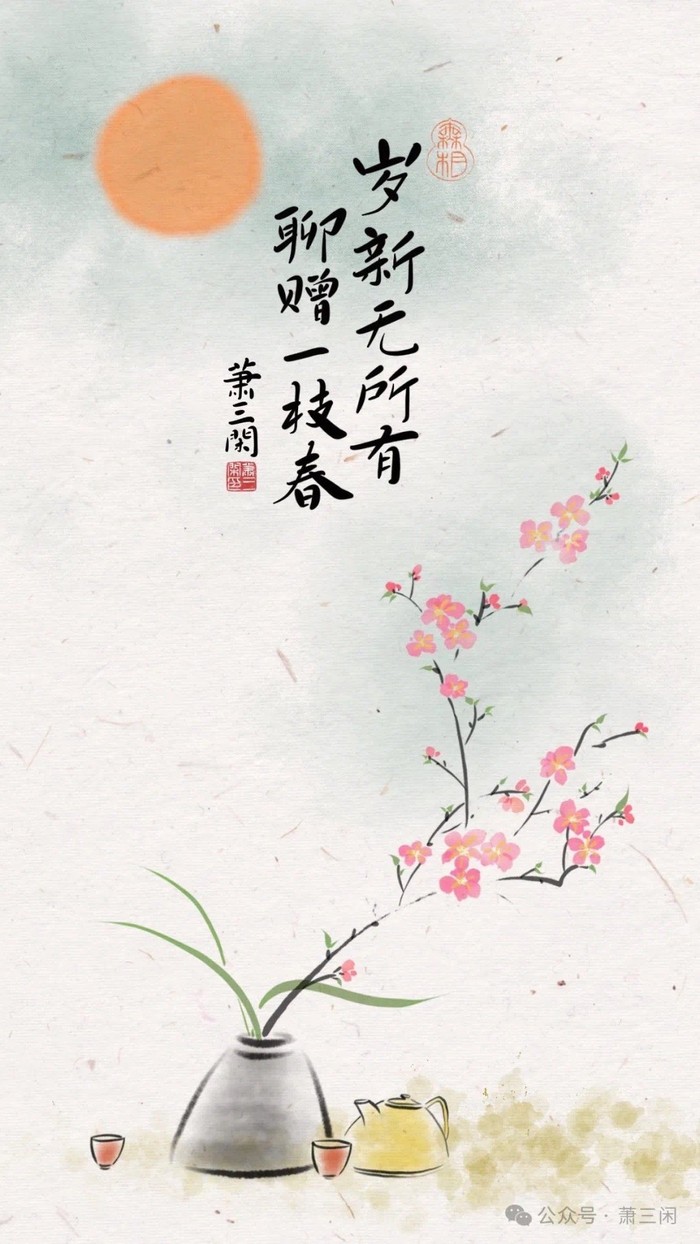 岁新无所有
聊赠一枝春
萧三闲
公众号·萧三闲